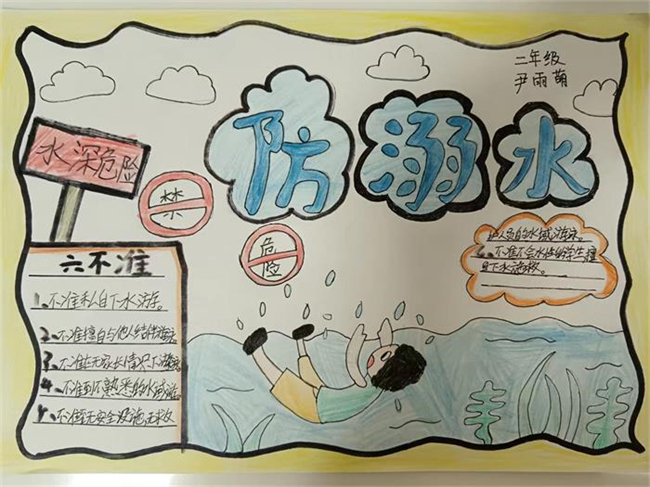 二年级
尹雨萌
防溺水
水深危险
禁
危险
六不准
1、不准私自下水游泳。
2、不准擅自与他人结伴游泳
3、不准在无家长情况下游泳
4、不准到不熟悉的水域游
不准
无安全设施无救
人员的水域游泳。
6、不准不会水性的学生擅
自下水施救。